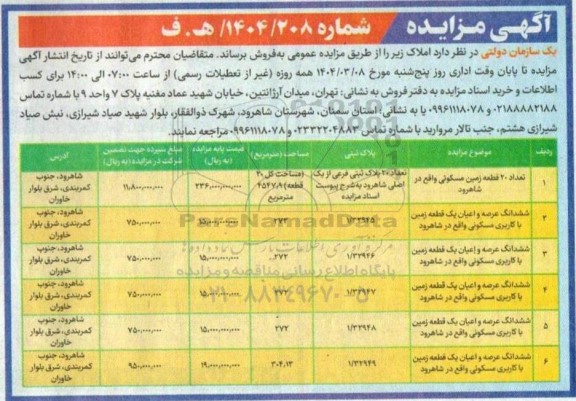 آگهی مزایده شماره ۱۴۰۴/۲۰۸/ هـ.ف
یک سازمان دولتی در نظر دارد املاک زیر را از طریق مزایده عمومی به‌فروش برساند. متقاضیان محترم می‌توانند از تاریخ انتشار آگهی
مزایده تا پایان وقت اداری روز پنج‌شنبه مورخ ۱۴۰۴/۰۳/۰۸ همه روزه (غیر از تعطیلات رسمی) از ساعت ۰۷:۰۰ الی ۱۴:۰۰ برای کسب
اطلاعات و خرید اسناد مزایده به دفتر فروش به نشانی: تهران، میدان آرژانتین، خیابان شهید عماد مغنیه پلاک ۷ واحد ۹ با شماره تماس
۰۲۱۸۸۸۸۲۱۸۸ و ۰۹۹۶۱۱۱۸۰۷۸ یا به نشانی: استان سمنان، شهرستان شاهرود، شهرک ذوالفقار، بلوار شهید صیاد شیرازی، نبش صیاد
شیرازی هشتم، جنب تالار مروارید با شماره تماس ۰۲۳۳۲۲۰۴۸۸۳ و ۰۹۹۶۱۱۱۸۰۷۸ مراجعه نمایند.
ردیف موضوع مزایده پلاک ثبتی مساحت (مترمربع) قیمت پایه مزایده (به ریال) مبلغ سپرده جهت تضمین شرکت در مزایده (به ریال) آدرس
۱ تعداد ۲۰ قطعه زمین مسکونی واقع در شاهرود تعداد ۲۰ پلاک ثبتی فرعی از یک اصلی شاهرود به‌شرح پیوست اسناد مزایده (مساحت کل ۲۰ قطعه) ۴۵۴۷.۹ مترمربع ۲۳۶,۰۰۰,۰۰۰,۰۰۰ ۱۱,۸۰۰,۰۰۰,۰۰۰ شاهرود، جنوب کمربندی، شرق بلوار خاوران
۲ ششدانگ عرصه و اعیان یک قطعه زمین با کاربری مسکونی واقع در شاهرود ۱/۳۲۹۴۵ ۲۷۲ ۱۵,۰۰۰,۰۰۰,۰۰۰ ۷۵۰,۰۰۰,۰۰۰ شاهرود، جنوب کمربندی، شرق بلوار خاوران
۳ ششدانگ عرصه و اعیان یک قطعه زمین با کاربری مسکونی واقع در شاهرود ۱/۳۲۹۴۶ ۲۷۲ ۱۵,۰۰۰,۰۰۰,۰۰۰ ۷۵۰,۰۰۰,۰۰۰ شاهرود، جنوب کمربندی، شرق بلوار خاوران
۴ ششدانگ عرصه و اعیان یک قطعه زمین با کاربری مسکونی واقع در شاهرود ۱/۳۲۹۴۷ ۲۷۲ ۱۵,۰۰۰,۰۰۰,۰۰۰ ۷۵۰,۰۰۰,۰۰۰ شاهرود، جنوب کمربندی، شرق بلوار خاوران
۵ ششدانگ عرصه و اعیان یک قطعه زمین با کاربری مسکونی واقع در شاهرود ۱/۳۲۹۴۸ ۲۷۲ ۱۵,۰۰۰,۰۰۰,۰۰۰ ۷۵۰,۰۰۰,۰۰۰ شاهرود، جنوب کمربندی، شرق بلوار خاوران
۶ ششدانگ عرصه و اعیان یک قطعه زمین با کاربری مسکونی واقع در شاهرود ۱/۳۲۹۴۹ ۳۰۴.۱۳ ۱۹,۰۰۰,۰۰۰,۰۰۰ ۹۵۰,۰۰۰,۰۰۰ شاهرود، جنوب کمربندی، شرق بلوار خاوران
ParsNamadData
پایگاه اطلاع رسانی مناقصه و مزایده
۰۲۱-۸۸۳۴۹۶۷۰-۵